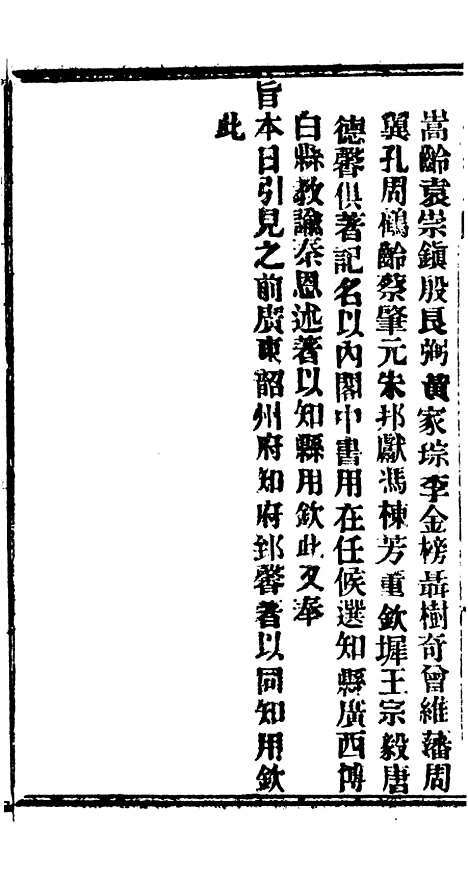 嵩齡袁崇鎮殷良弼黃家琮李金榜聶樹奇曾維藩周
巽孔周鶴齡蔡肇元朱邦獻馮棟芳董欽墀王宗毅唐
德馨俱著記名以內閣中書用在任候選知縣廣西博
白縣教諭秦恩述著以知縣用欽此又奉
旨本日引見之前廣東韶州府知府郅馨著以同知用欽
此